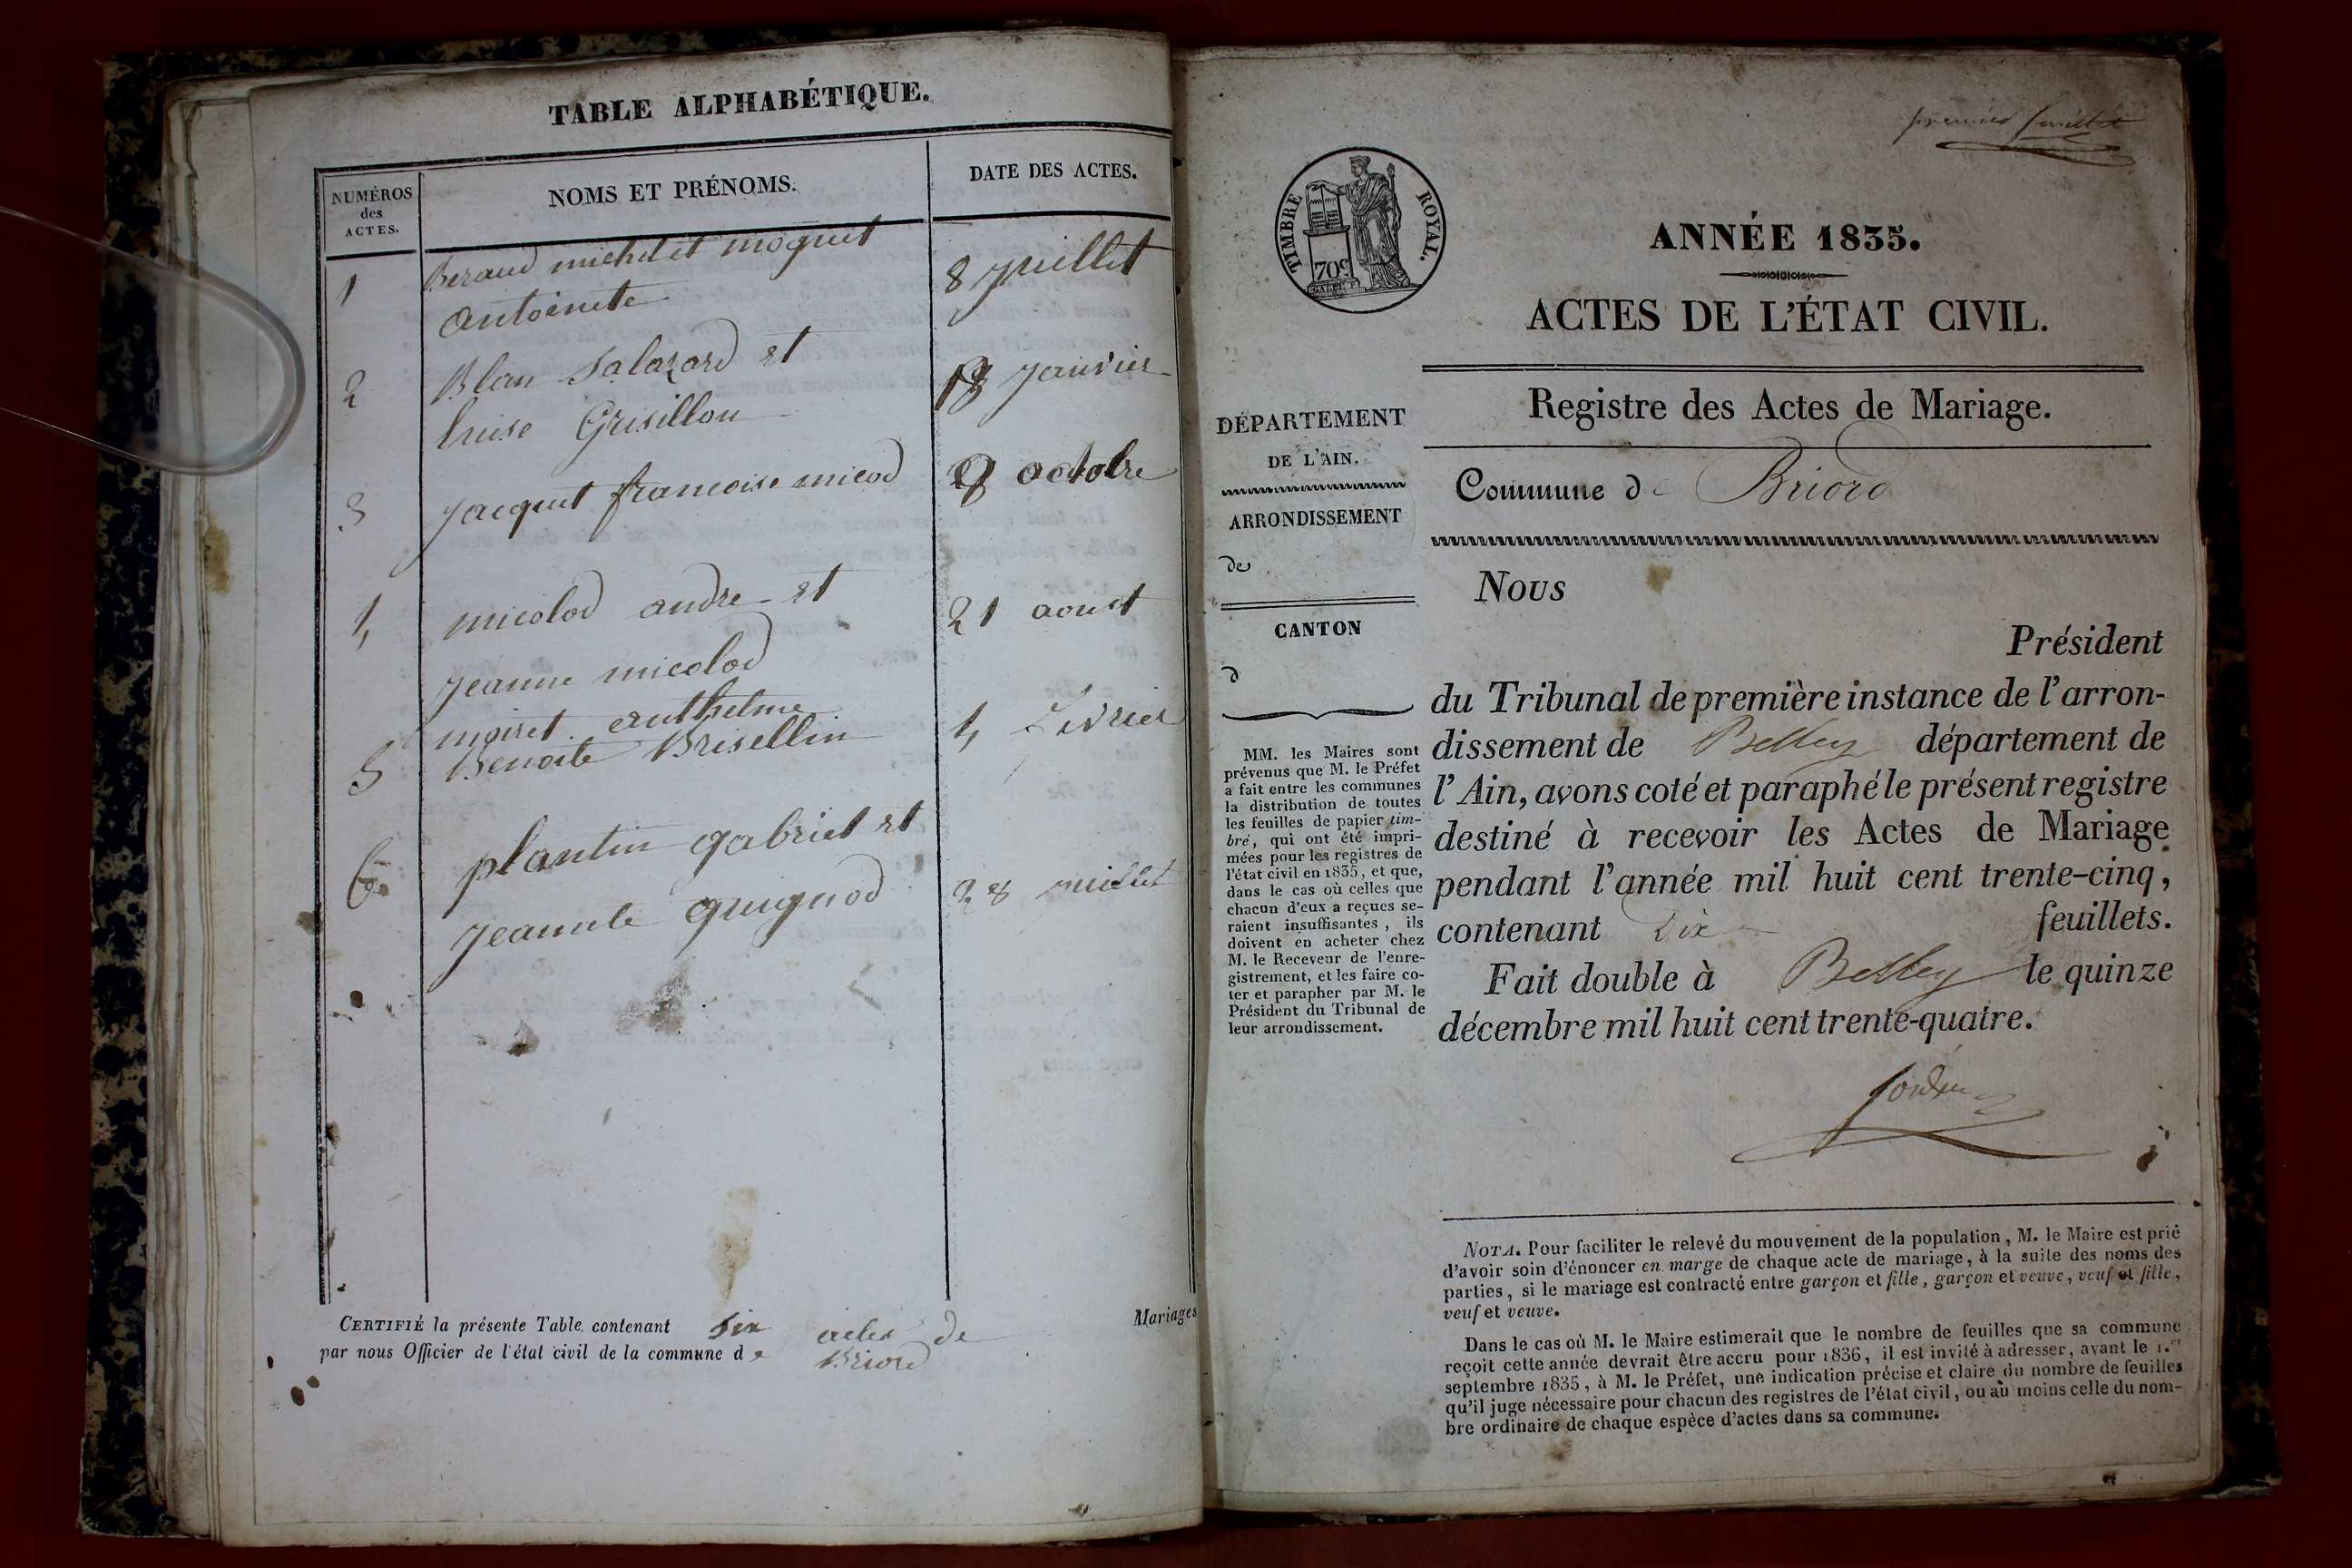 TABLE ALPHABÉTIQUE.
NUMÉROS
des
ACTES.
NOMS ET PRÉNOMS.
DATE DES ACTES.
1 Beraud michel et moguet
antoinete 8 juillet
2 Blan Salazard et
luise Grisillon 18 janvier
3 jacquet francoise micod octobre
4 micolod andre et 21 aoust
jeanne micolod
moiret anthelme
5 Benoite Brisellin 4 Fevrier
6 plantin gabriel et
jeannete guignod 28 juillet
CERTIFIÉ la présente Table contenant Six actes de Mariages
par nous Officier de l'état civil de la commune de Briord
premier feuillet
TIMBRE ROYAL.
70c
ANNÉE 1835.
ACTES DE L'ÉTAT CIVIL.
Registre des Actes de Mariage.
DÉPARTEMENT
DE L'AIN.
ARRONDISSEMENT
de
CANTON
d
MM. les Maires sont
prévenus que M. le Préfet
a fait entre les communes
la distribution de toutes
les feuilles de papier tim-
bré, qui ont été impri-
mées pour les registres de
l'état civil en 1835, et que,
dans le cas où celles que
chacun d'eux a reçues se-
raient insuffisantes, ils
doivent en acheter chez
M. le Receveur de l'enre-
gistrement, et les faire co-
ter et parapher par M. le
Président du Tribunal de
leur arrondissement.
Commune de Briord
Nous
Président
du Tribunal de première instance de l'arron-
dissement de Belley département de
l'Ain, avons coté et paraphé le présent registre
destiné à recevoir les Actes de Mariage
pendant l'année mil huit cent trente-cinq,
contenant Dix feuillets.
Fait double à Belley le quinze
décembre mil huit cent trente-quatre.
NOTA. Pour faciliter le relevé du mouvement de la population, M. le Maire est prié
d'avoir soin d'énoncer en marge de chaque acte de mariage, à la suite des noms des
parties, si le mariage est contracté entre garçon et fille, garçon et veuve, veuf et fille,
veuf et veuve.
Dans le cas où M. le Maire estimerait que le nombre de feuilles que sa commune
reçoit cette année devrait être accru pour 1836, il est invité à adresser, avant le 1.er
septembre 1835, à M. le Préfet, une indication précise et claire du nombre de feuilles
qu'il juge nécessaire pour chacun des registres de l'état civil, ou au moins celle du nom-
bre ordinaire de chaque espèce d'actes dans sa commune.